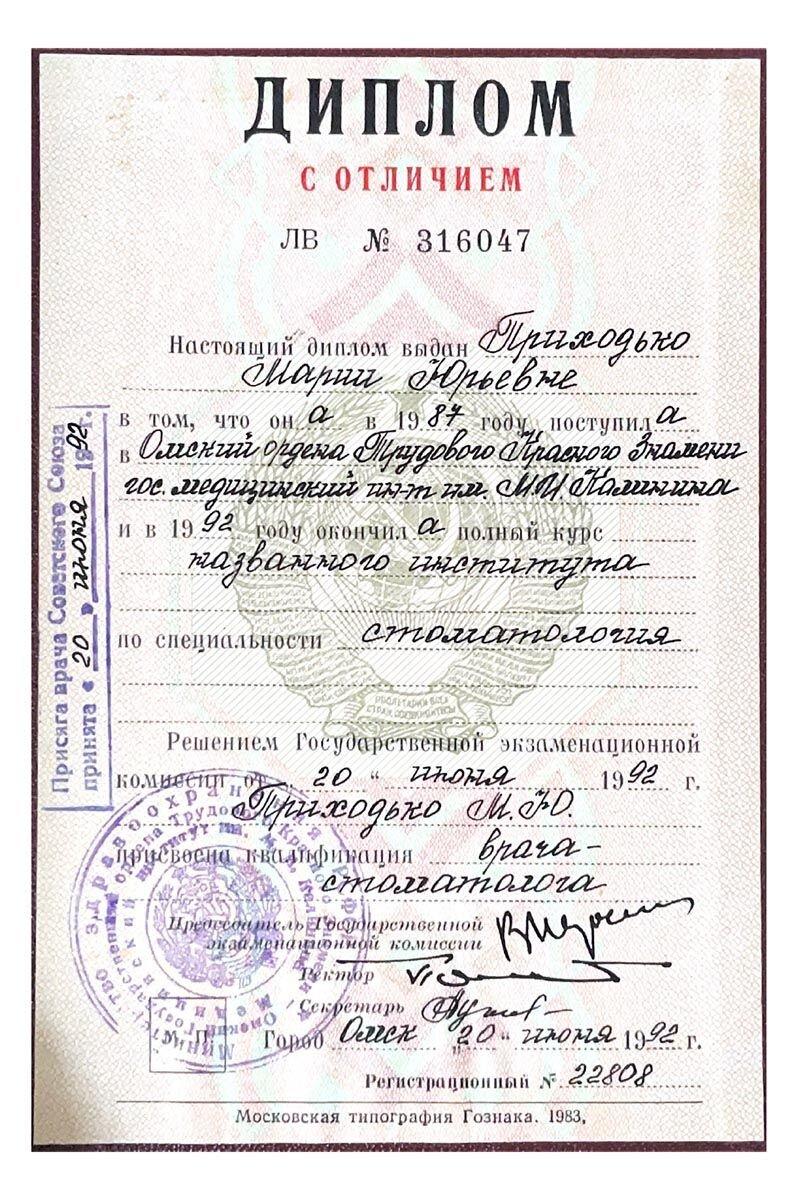 ДИПЛОМ
С ОТЛИЧИЕМ
ЛВ № 316047
Настоящий диплом выдан Приходько
Марии Юрьевне
в том, что он а в 1987 году поступил а
в Омский ордена Трудового Красного Знамени
гос. медицинский ин-т им. М.И. Калинина
и в 1992 году окончил а полный курс
названного института
по специальности стоматология
ПРОЛЕТАРИИ ВСЕХ
СТРАН, СОЕДИНЯЙТЕСЬ!
Решением Государственной экзаменационной
комиссии от „ 20 “ июня 1992 г.
Приходько М.Ю.
присвоена квалификация врача-
стоматолога
Председатель Государственной
экзаменационной комиссии
Ректор
Секретарь
М. П.
Город Омск „ 20 “ июня 1992 г.
Регистрационный № 22808
Московская типография Гознака. 1983,
Присяга врача Советского Союза
принята « 20 » июня 1992 г.